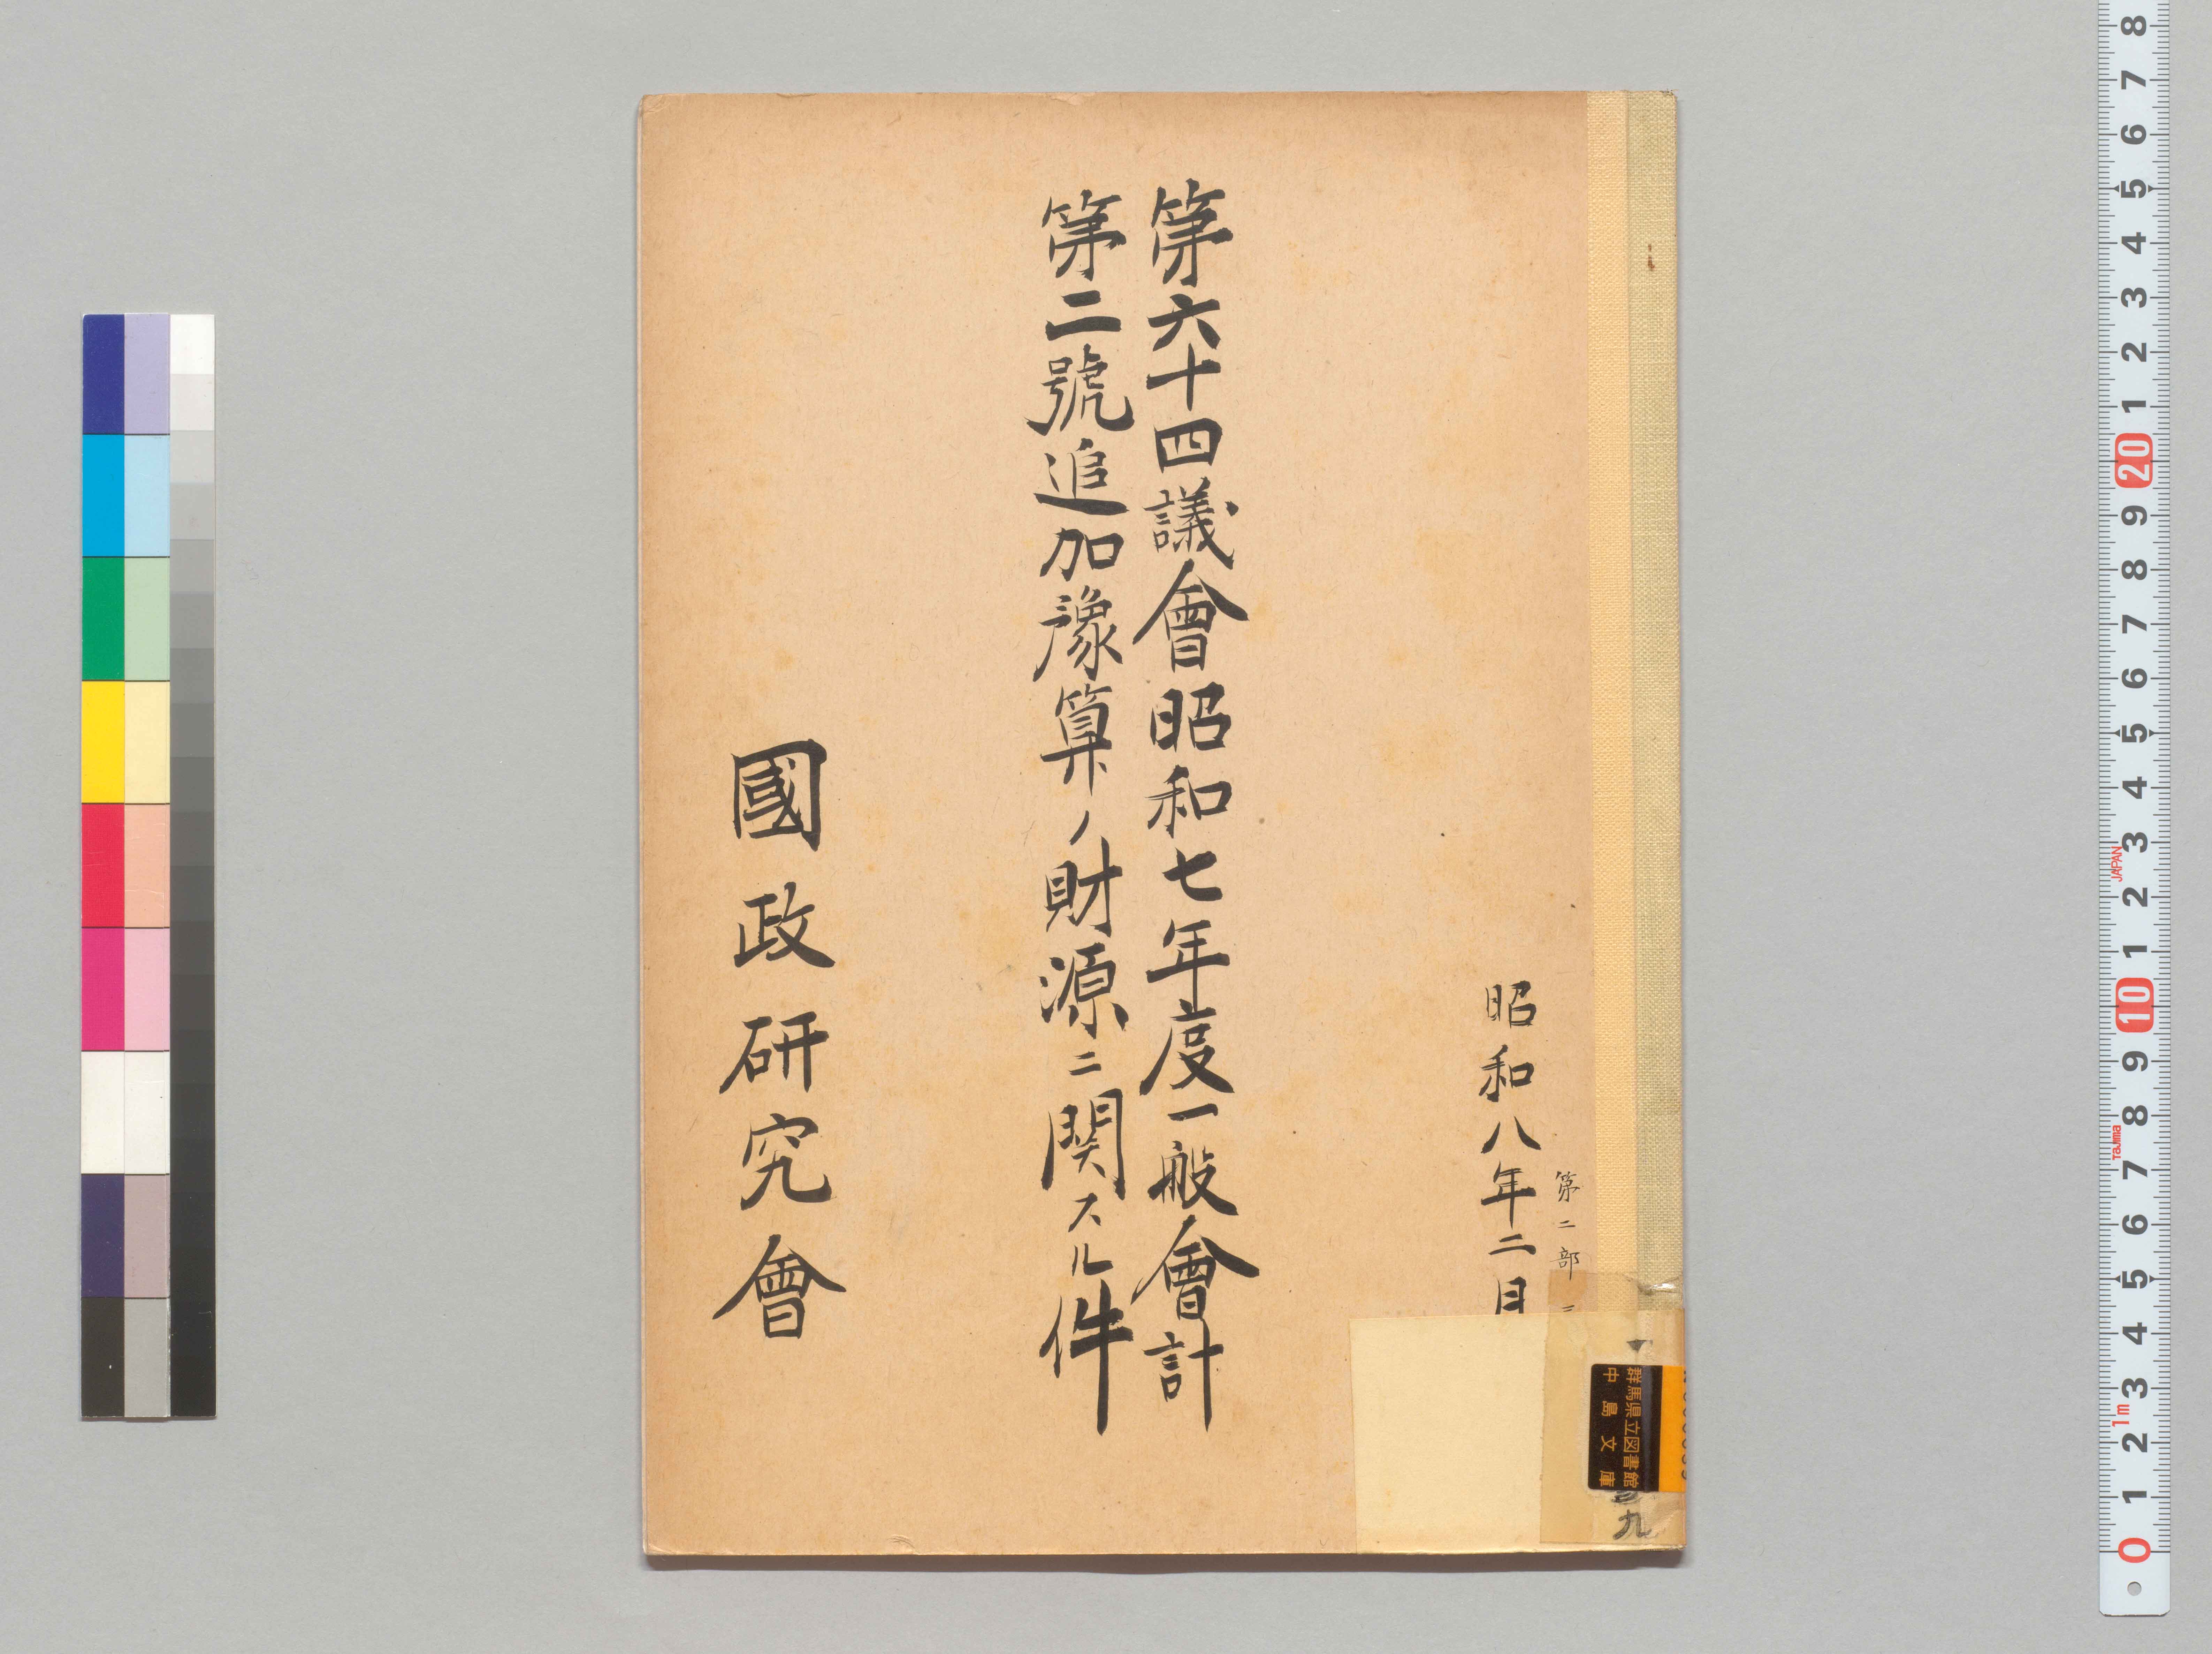 第二部
昭和八年二月
第六十四議會昭和七年度一般會計
第二號追加豫算ノ財源ニ関スル件
國政研究會
群馬県立図書館
中島文庫
九
8 7 6 5 4 3 2 1 20 9 8 7 6 5 4 3 2 1 10 9 8 7 6 5 4 3 2 1 0
JAPAN
Tajima
1m